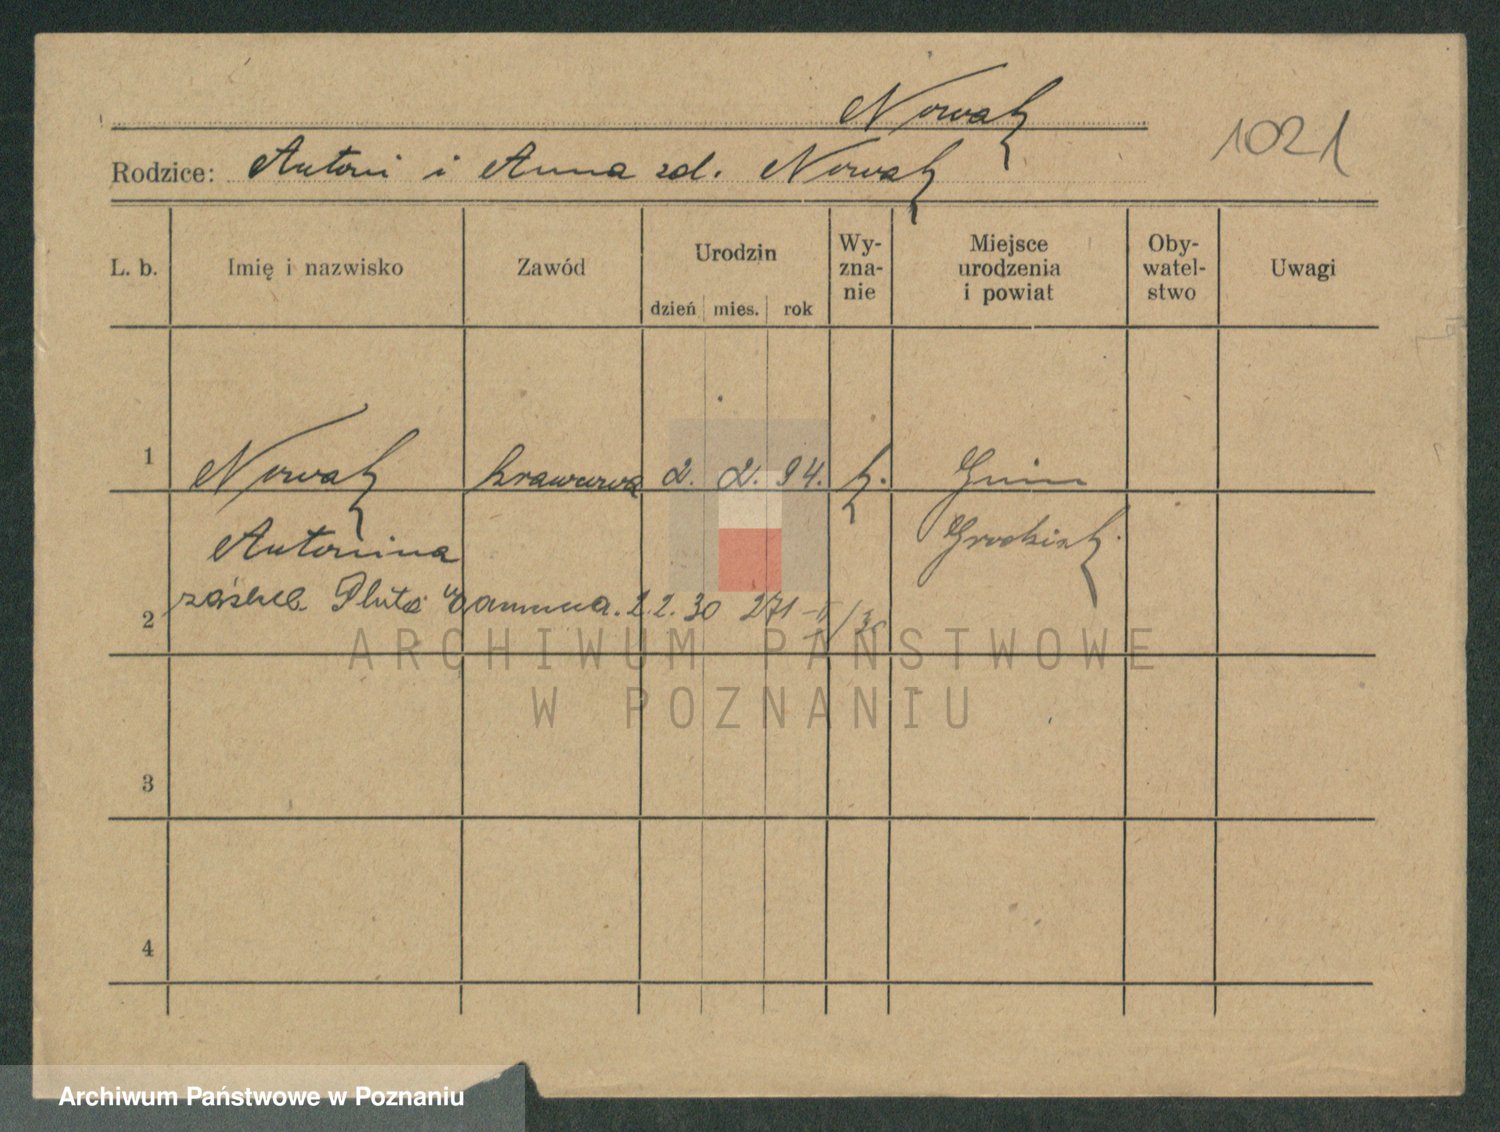 Nowak
1021
Rodzice: Antoni i Anna zd. Nowak
L. b. Imię i nazwisko Zawód Urodzin dzień mies. rok Wy-zna-nie Miejsce urodzenia i powiat Oby-watel-stwo Uwagi
1 Nowak krawcowa 2. 2. 94. k. Gnin
Antonina Grodzisk
2 zaślub. Pluta 2.2.30 271
3
4
ARCHIWUM PAŃSTWOWE
W POZNANIU
Archiwum Państwowe w Poznaniu